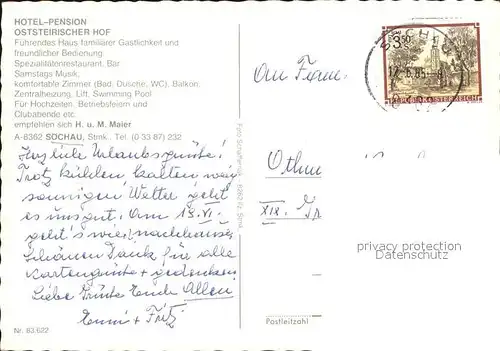 HOTEL-PENSION
OSTSTEIRISCHER HOF
Führendes Haus familiärer Gastlichkeit und
freundlicher Bedienung.
Spezialitätenrestaurant, Bar
Samstags Musik,
komfortable Zimmer (Bad, Dusche, WC), Balkon,
Zentralheizung, Lift, Swimming Pool
Für Hochzeiten, Betriebsfeiern und
Clubabende etc.
empfehlen sich H. u. M. Maier
A-8362 SÖCHAU, Stmk. Tel. (0 33 87) 232
Herzliche Urlaubsgrüße!
Trotz kühlen kalten
sonnigen Wetter geht
es uns gut. Am 18.VI.
geht's wieder nachhause
schönen Dank für alle
Kartengrüße + gedenken
Liebe Grüße Euch Allen
Fritz
Nr. 83.622
3.50
REPUBLIK ÖSTERREICH
An Fam.
Othm
XIX.
Postleitzahl
privacy protection
Datenschutz